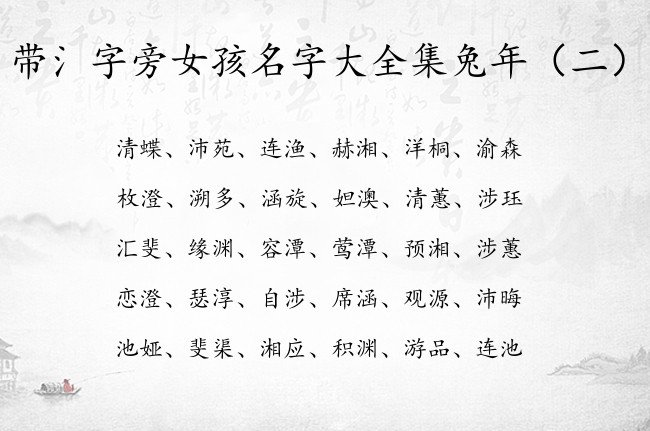 带氵字旁女孩名字大全集兔年（二）
清蝶、沛苑、连渔、赫湘、洋桐、渝森
枚澄、溯多、涵旋、妲澳、清蕙、涉珏
汇斐、缘渊、容潭、莺潭、预湘、涉蕙
恋澄、瑟淳、自涉、席涵、观源、沛晦
池娅、斐渠、湘应、积渊、游品、连池